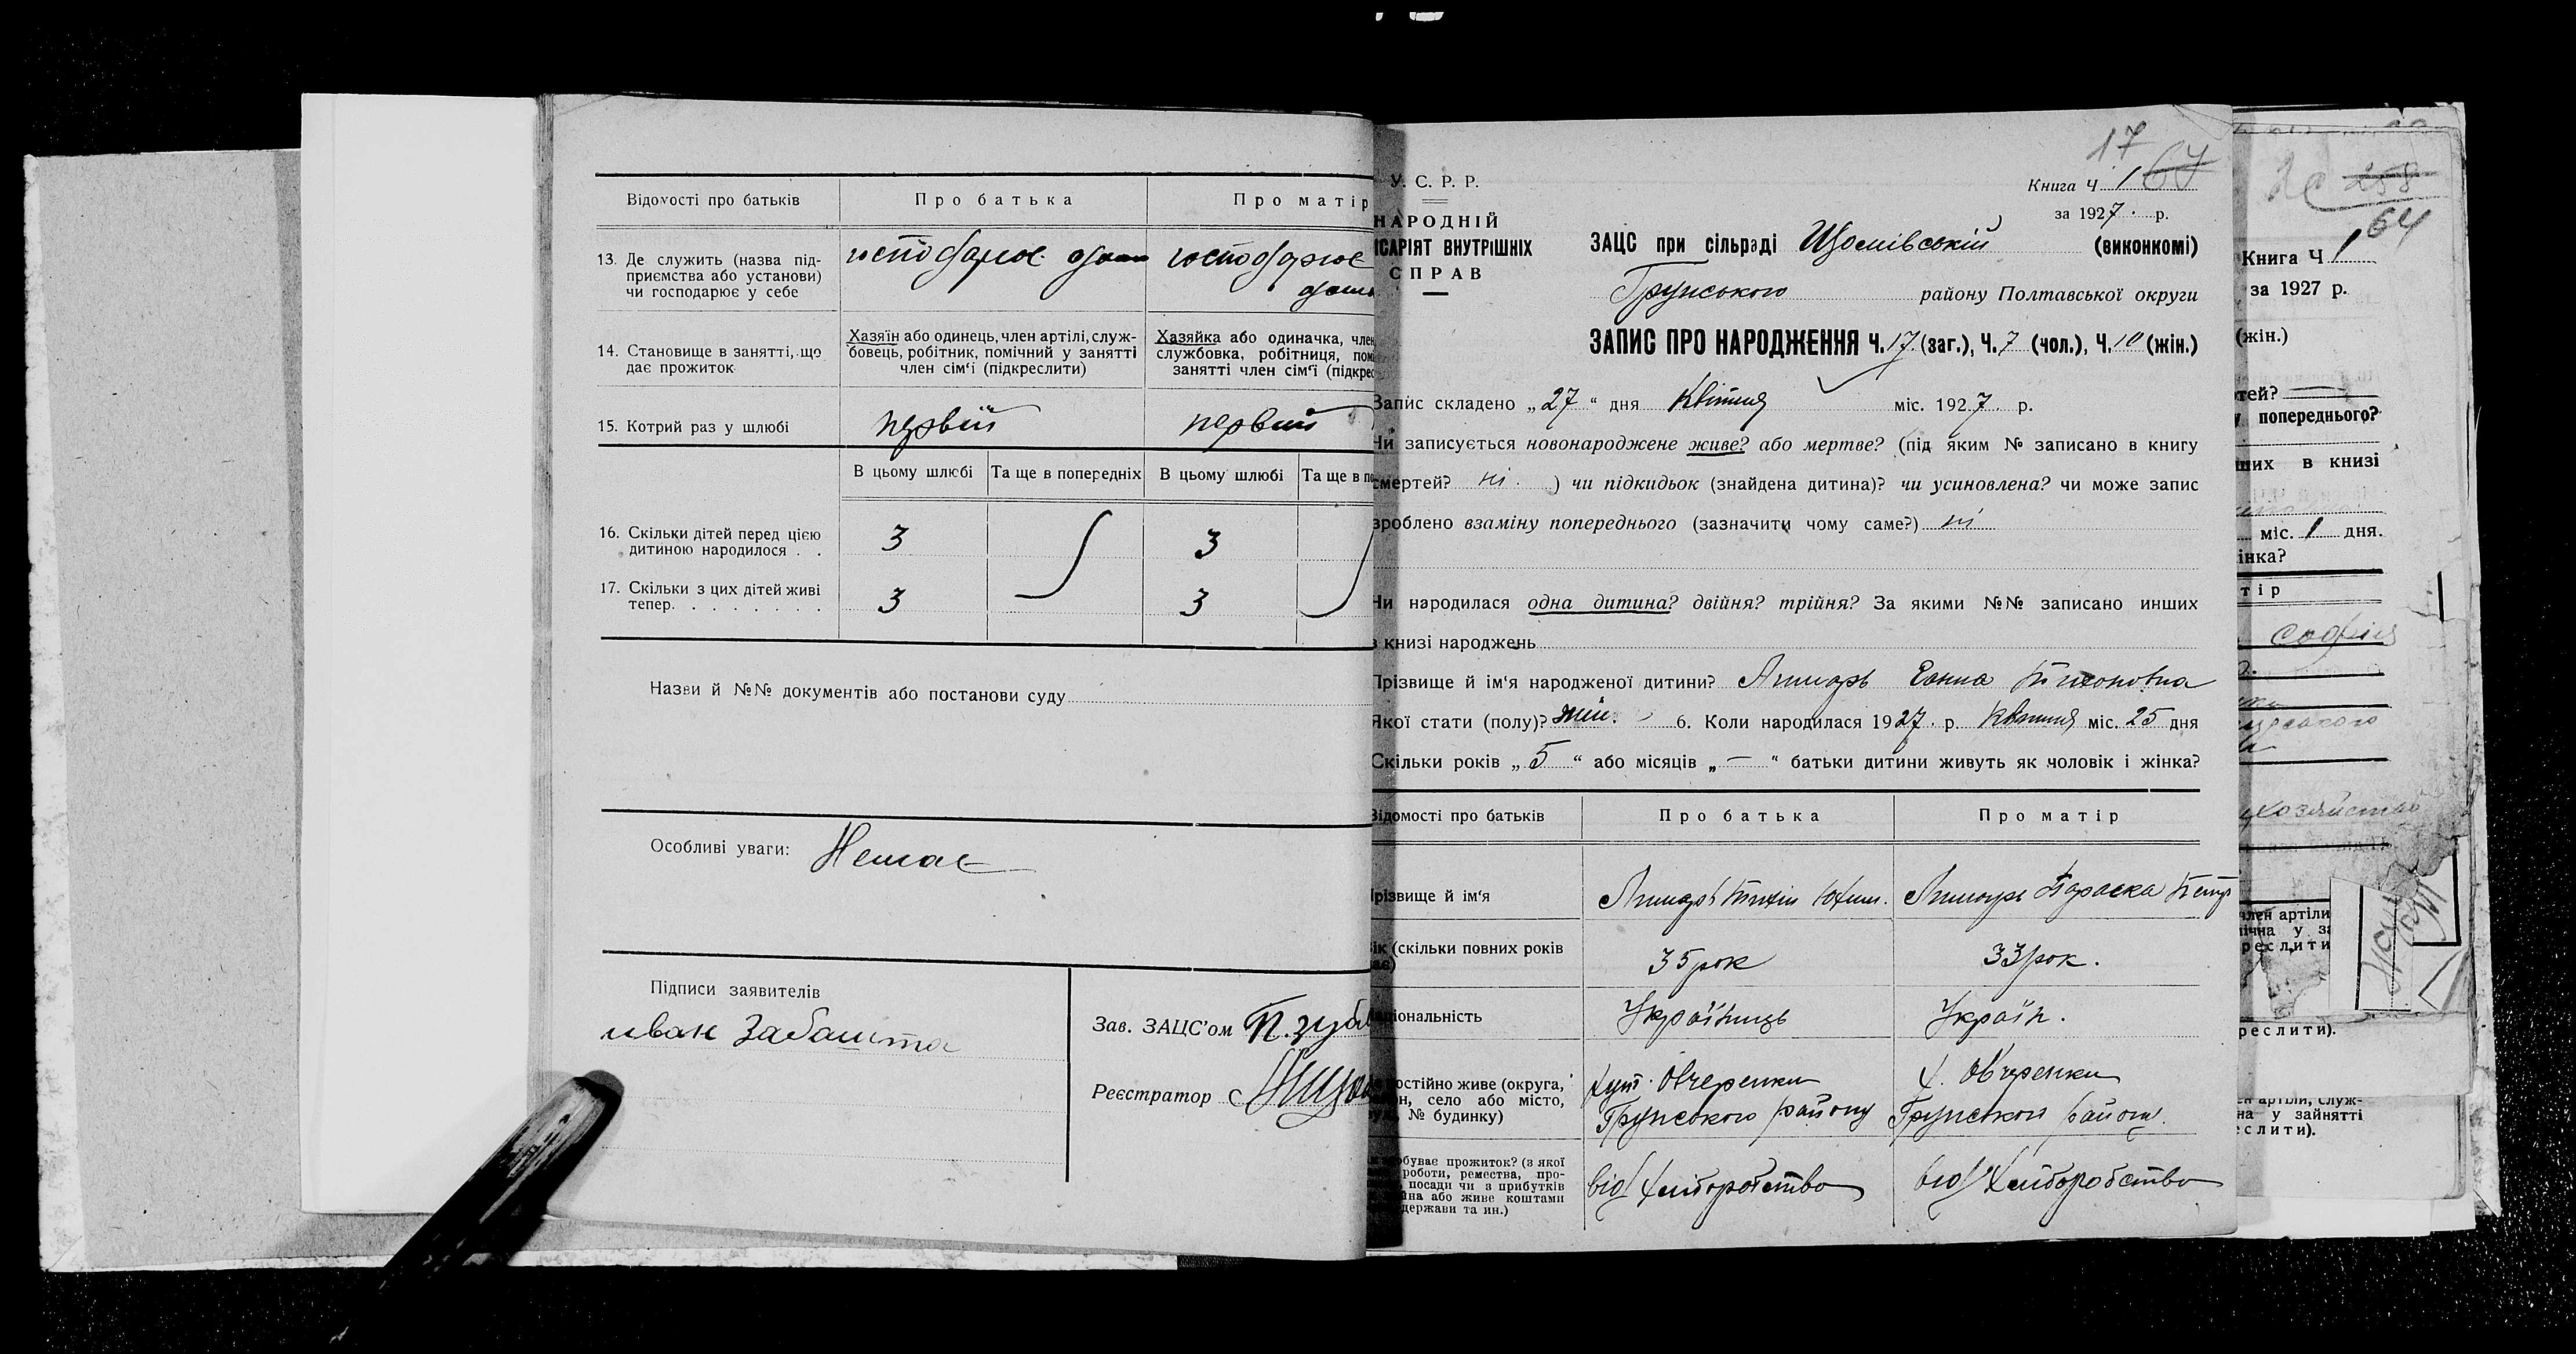 Відомості про батьків
Про батька
Про матір
13. Де служить (назва під-
приємства або установи)
чи господарює у себе
господарює дома
господарює
дома
14. Становище в занятті, що
дає прожиток
Хазяїн або одинець, член артілі, служ-
бовець, робітник, помічний у занятті
член сім'ї (підкреслити)
Хазяйка або одиначка, член
службовка, робітниця, пом
занятті член сім'ї (підкрес
15. Котрий раз у шлюбі
первий
первий
В цьому шлюбі
Та ще в попередніх
В цьому шлюбі
Та ще в по
16. Скільки дітей перед цією
дитиною народилося . .
3
3
17. Скільки з цих дітей живі
тепер. . . . . . . .
3
3
Назви й №№ документів або постанови суду
Особливі уваги: Немає
Підписи заявителів
иван Забашта
Зав. ЗАЦС'ом П.
Реєстратор
17
67
У. С. Р. Р.
НАРОДНІЙ
ІСАРІЯТ ВНУТРІШНІХ
СПРАВ
Книга Ч 1
за 1927 р.
ЗАЦС при сільраді (виконкомі)
Грунського району Полтавської округи
ЗАПИС ПРО НАРОДЖЕННЯ Ч. 17 (заг.), Ч. 7 (чол.), Ч. 10 (жін.)
Запис складено „27“ дня Квітня міс. 1927. р.
Чи записується новонароджене живе? або мертве? (під яким № записано в книгу
смертей? ні ) чи підкидьок (знайдена дитина)? чи усиновлена? чи може запис
зроблено взаміну попереднього (зазначити чому саме?) ні
Чи народилася одна дитина? двійня? трійня? За якими №№ записано инших
в книзі народжень
Прізвище й ім'я народженої дитини? Лимарь Ганна Тихоновна
Якої стати (полу)? жін. 6. Коли народилася 1927. р. Квітня міс. 25 дня
Скільки років „5“ або місяців „—“ батьки дитини живуть як чоловік і жінка?
Відомості про батьків
Про батька
Про матір
Прізвище й ім'я
Лимарь Тихін Юхим.
Лимарь Параска Петр
ік (скільки повних років
35 рок
33 рок.
Національність
Українець
Україн.
остійно живе (округа,
н, село або місто,
№ будинку)
хут. Овчеренки
Грунського району
х. Овчеренки
Грунського району.
буває прожиток? (з якої
роботи, ремества, про-
посади чи з прибутків
йна або живе коштами
держави та ин.)
від хліборобство
від хліборобства
258
64
Книга Ч 1
за 1927 р.
(жін.)
тей? —
попереднього?
ших в книзі
міс. 1 дня.
інка?
тір
София
хозяйство
член артіли
ічна у за
реслити
реслити).
ен артіли, служ-
на у зайнятті
еслити).